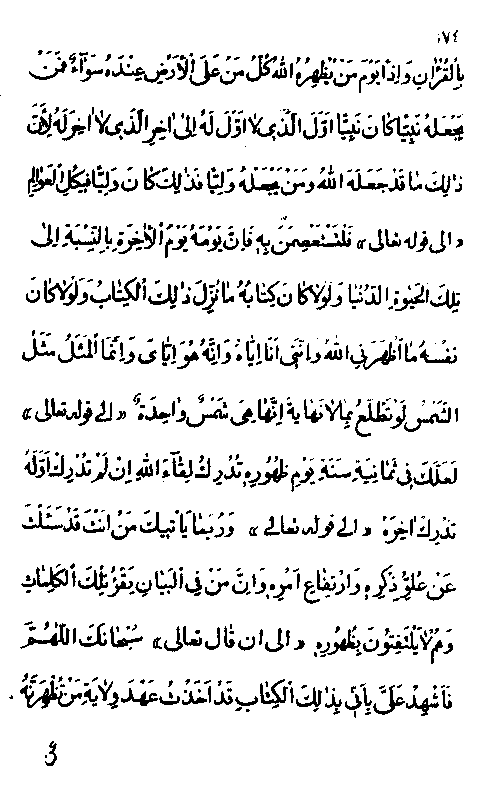 ٧٤
بِالْقُرْآنِ وَإِذَا يَوْمَ مَنْ يُظْهِرُهُ اللهُ كُلُّ مَنْ عَلَى الْأَرْضِ عِنْدَهُ سَوَآءٌ فَمَنْ
يَجْعَلُهُ نَبِيًّا كَانَ نَبِيًّا اَوَّلَ الَّذِي لَا اَوَّلَ لَهُ إِلَىٰ اٰخِرِ الَّذِي لَا اٰخِرَ لَهُ لِأَنَّ
ذٰلِكَ مَا قَدْ جَعَلَهُ اللهُ وَمَنْ يَجْعَلُهُ وَلِيًّا فَذٰلِكَ كَانَ وَلِيًّا فِي كُلِّ الْعَوَالِمِ
«الى قوله تعالى» فَلْتَسْتَعْصِمَنَّ بِهِ فَإِنَّ يَوْمَهُ يَوْمُ الْاٰخِرَةِ بِالنِّسْبَةِ إِلَىٰ
تِلْكَ الْحَيٰوةِ الدُّنْيَا وَلَوْلَا كَانَ كِتَابُهُ مَا نُزِّلَ ذٰلِكَ الْكِتَابُ وَلَوْلَا كَانَ
نَفْسُهُ مَا أَظْهَرَنِي اللهُ وَانَّنِي اَنَا اِيَّاهُ وَاِنَّهُ هُوَ اِيَّايَ وَاِنَّمَا الْمَثَلُ مَثَلُ
الشَّمْسِ لَوْ تَطْلَعُ بِمَا لَا نِهَايَةَ اِنَّهَا هِيَ شَمْسٌ وَاحِدَةٌ «الى قوله تعالى»
لَعَلَّكَ فِي ثَمَانِيَةِ سَنَةٍ يَوْمَ ظُهُورِهِ تُدْرِكُ لِقَآءَ اللهِ اِنْ لَمْ تُدْرِكْ اَوَّلَهُ
تُدْرِكْ اٰخِرَهُ «الى قوله تعالى» وَرُبَمَا يَأْتِيكَ مَنْ اَنْتَ قَدْ سَئَلْتَ
عَنْ عُلُوِّ ذِكْرِهِ وَارْتِفَاعِ اَمْرِهِ وَاِنَّ مَنْ فِي الْبَيَانِ يَقْرَؤُ تِلْكَ الْكَلِمَاتِ
وَهُمْ لَا يَلْتَفِتُونَ بِظُهُورِهِ «الى ان قال تعالى» سُبْحَانَكَ اللّٰهُمَّ
فَاشْهَدْ عَلَيَّ بِاَنِّي بِذٰلِكَ الْكِتَابِ قَدْ اَخَذْتُ عَهْدَ وِلَايَةِ مَنْ تُظْهِرَنَّهُ .